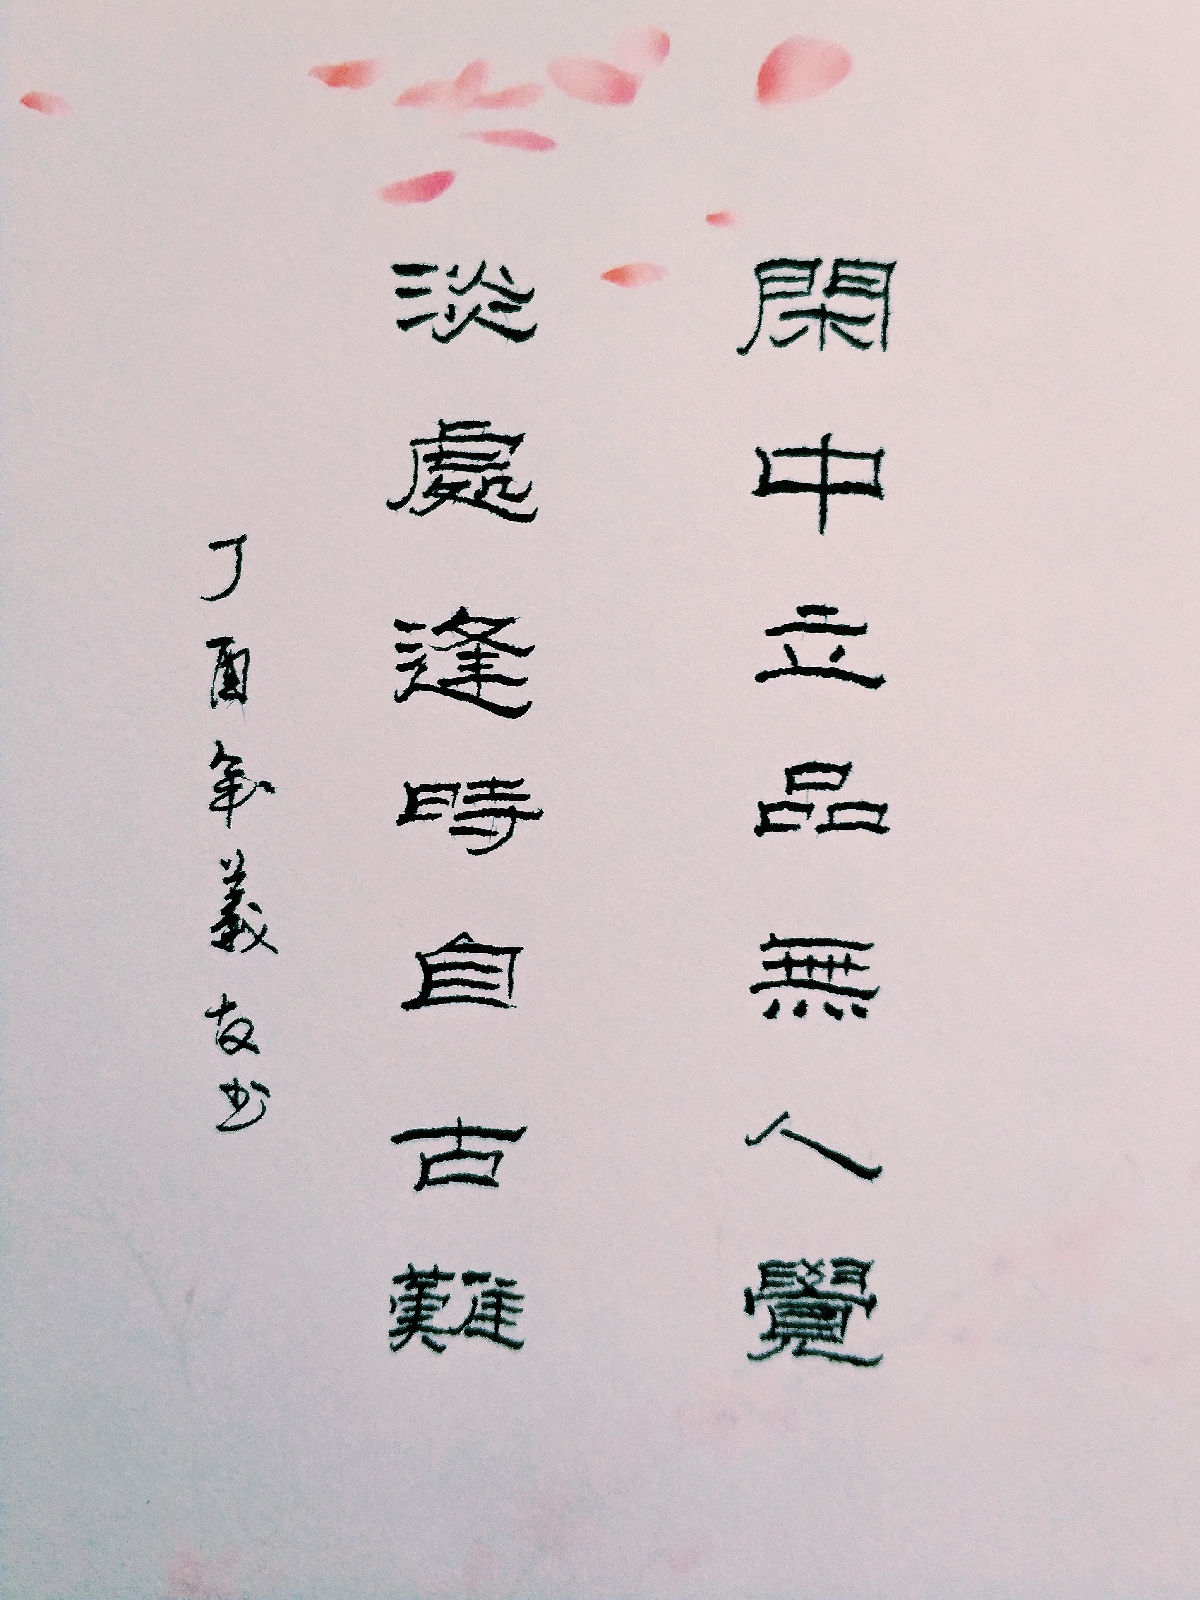 閑中立品無人覺
淡處逢時自古難
丁酉年義友书